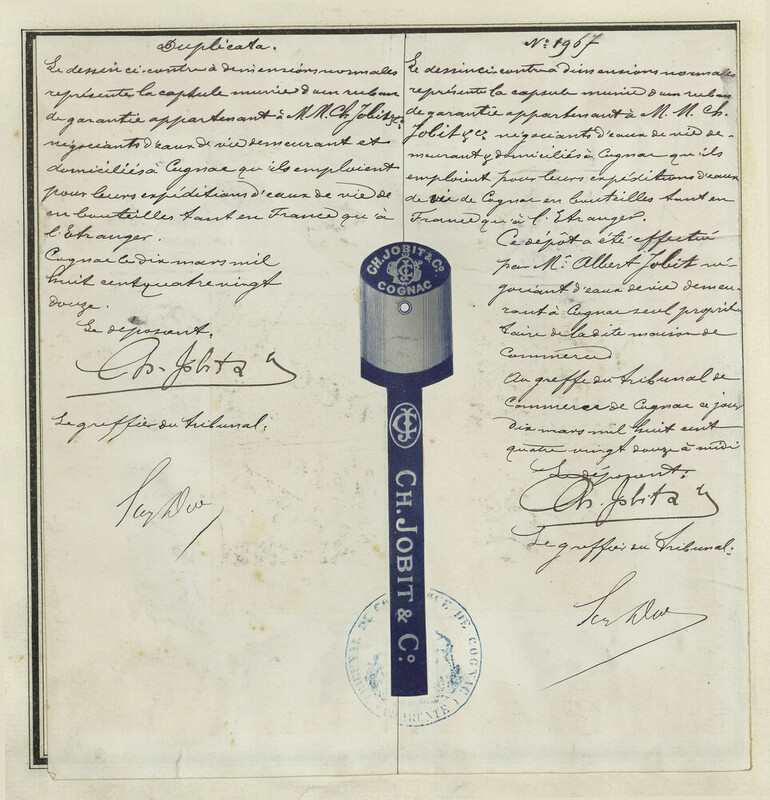 Duplicata.
Le dessin ci-contre à dimensions normales
représente la capsule munie d'un ruban
de garantie appartenant à M.M. Ch. Jobit & Cº
négociants d'eaux de vie demeurant et
domiciliés à Cognac qu'ils emploient
pour leurs expéditions d'eaux de vie de
en bouteilles tant en France qu'à
l'Etranger.
Cognac le dix mars mil
huit cent quatre vingt
douze.
Le déposant.
Ch. Jobit &
Le greffier du tribunal.
Nº 1967
Le dessin ci-contre à dimensions normales
représente la capsule munie d'un ruban
de garantie appartenant à M. M. Ch.
Jobit & Cº négociants d'eaux de vie de-
meurant & domiciliés à Cognac qu'ils
emploient pour leurs expéditions d'eaux
de vie de Cognac en bouteilles tant en
France qu'à l'Etranger.
Ce dépôt a été effectué
par Mr Albert Jobit né-
gociant d'eaux de vie demeu-
rant à Cognac seul proprié
taire de la dite maison de
Commerce
Au greffe du tribunal de
Commerce de Cognac ce jour
dix mars mil huit cent
quatre vingt douze à midi
Le déposant.
Ch. Jobit &
Le greffier du tribunal.
CH. JOBIT & Cº
COGNAC
CH. JOBIT & Cº
TRIBUNAL DE COMMERCE DE COGNAC
(CHARENTE)